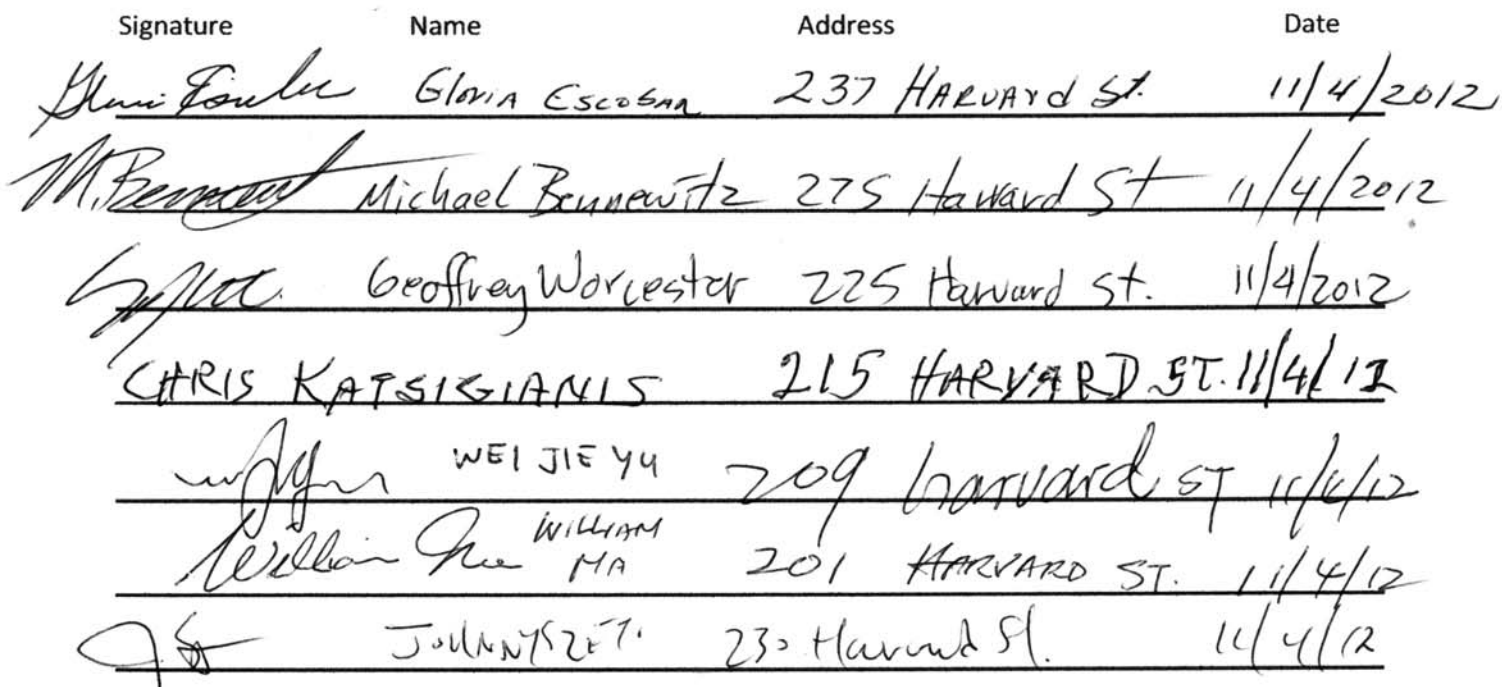 Signature Name Address Date
Gloria Escobar 237 Harvard St. 11/4/2012
M. Bennewitz Michael Bennewitz 275 Harvard St 11/4/2012
Geoffrey Worcester 225 Harvard St. 11/4/2012
CHRIS KATSIGIANIS 215 HARVARD ST. 11/4/12
WEI JIE YU 209 harvard ST 11/4/12
William Ma WILLIAM MA 201 HARVARD ST. 11/4/12
230 Harvard St. 11/4/12